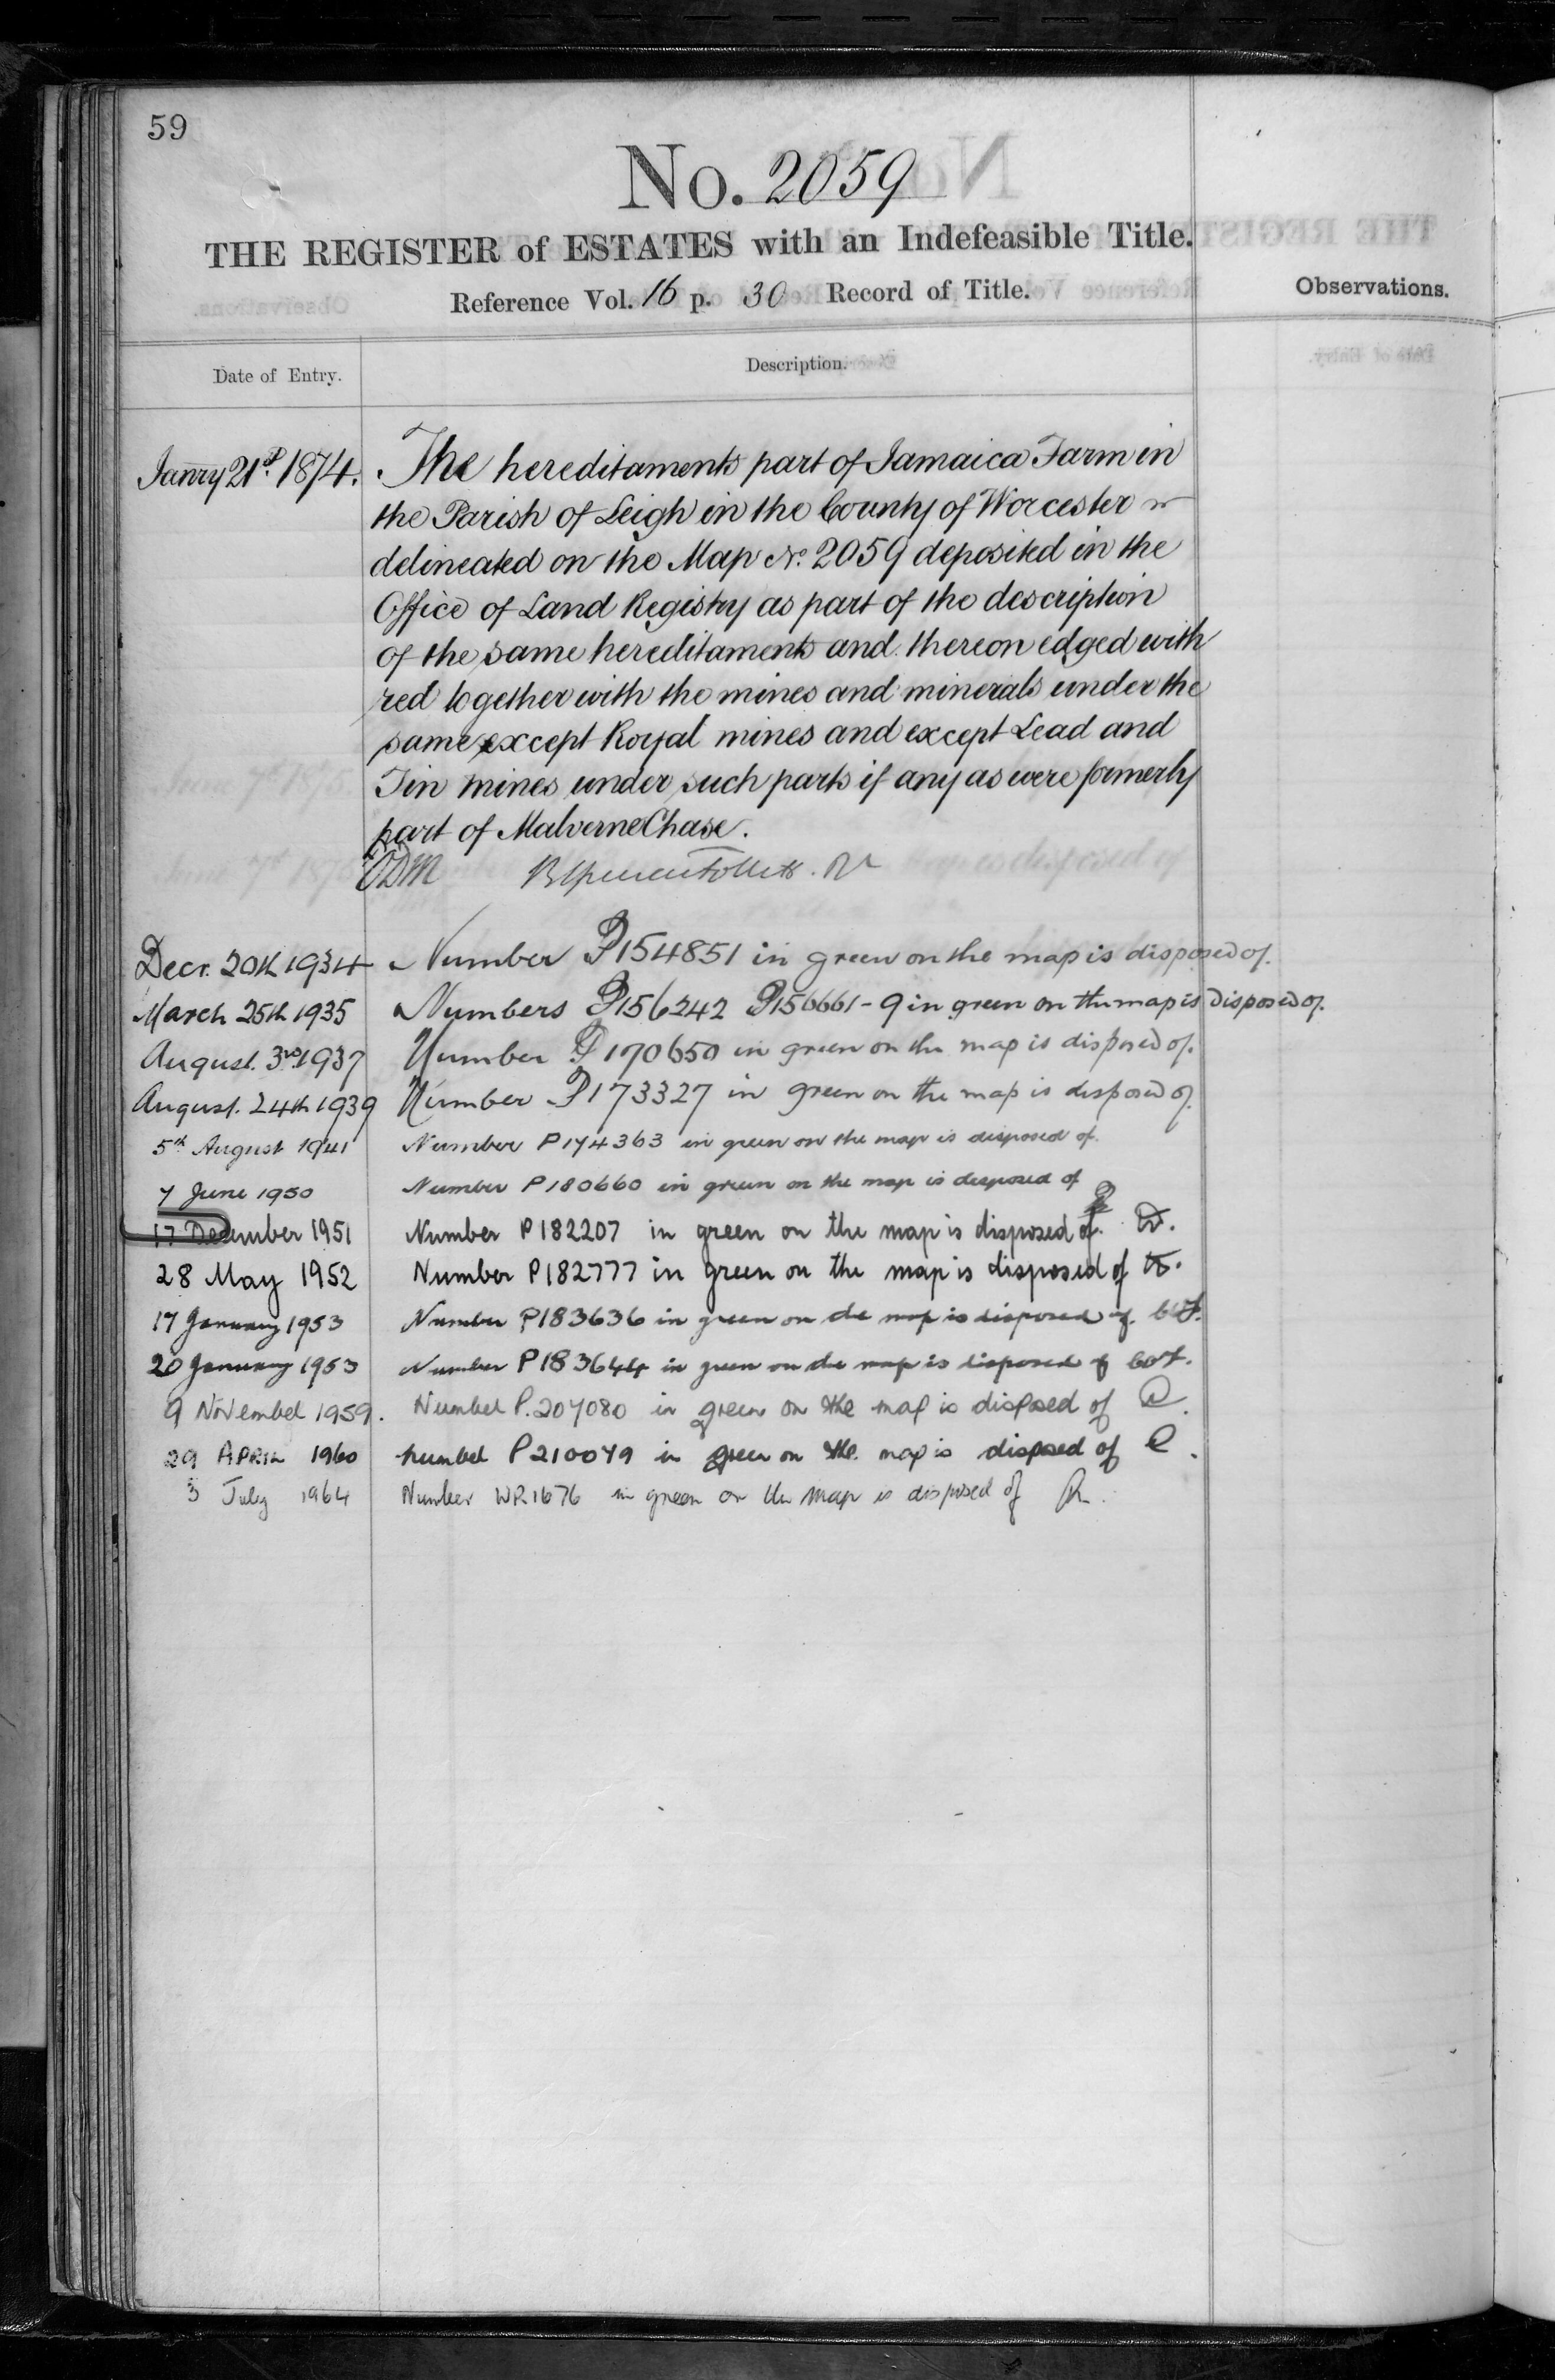 59
No. 2059
THE REGISTER of ESTATES with an Indefeasible Title.
Reference Vol. 16 p. 30 Record of Title.
Observations.
Date of Entry.
Description.
Janry 21st 1874. The hereditaments part of Jamaica Farm in
the Parish of Leigh in the County of Worcester
delineated on the Map No. 2059 deposited in the
Office of Land Registry as part of the description
of the same hereditaments and thereon edged with
red together with the mines and minerals under the
same except Royal mines and except Lead and
Tin mines under such parts if any as were formerly
part of Malverne Chase.
Decr. 20th 1934 Number P154851 in green on the map is disposed of.
March 25th 1935 Numbers P156242 P156661-9 in green on the map is disposed of.
August. 3rd 1937 Number P170650 in green on the map is disposed of.
August. 24th 1939 Number P173327 in green on the map is disposed of.
5th August 1941 Number P174363 in green on the map is disposed of.
7 June 1950 Number P180660 in green on the map is disposed of
17 December 1951 Number P182207 in green on the map is disposed of.
28 May 1952 Number P182777 in green on the map is disposed of
17 January 1953 Number P183636 in green on the map is disposed of.
20 January 1953 Number P183644 in green on the map is disposed of
9 November 1959. Number P.207080 in green on the map is disposed of
29 APRIL 1960 number P210079 in green on the map is disposed of
3 July 1964 Number WR1676 in green on the map is disposed of